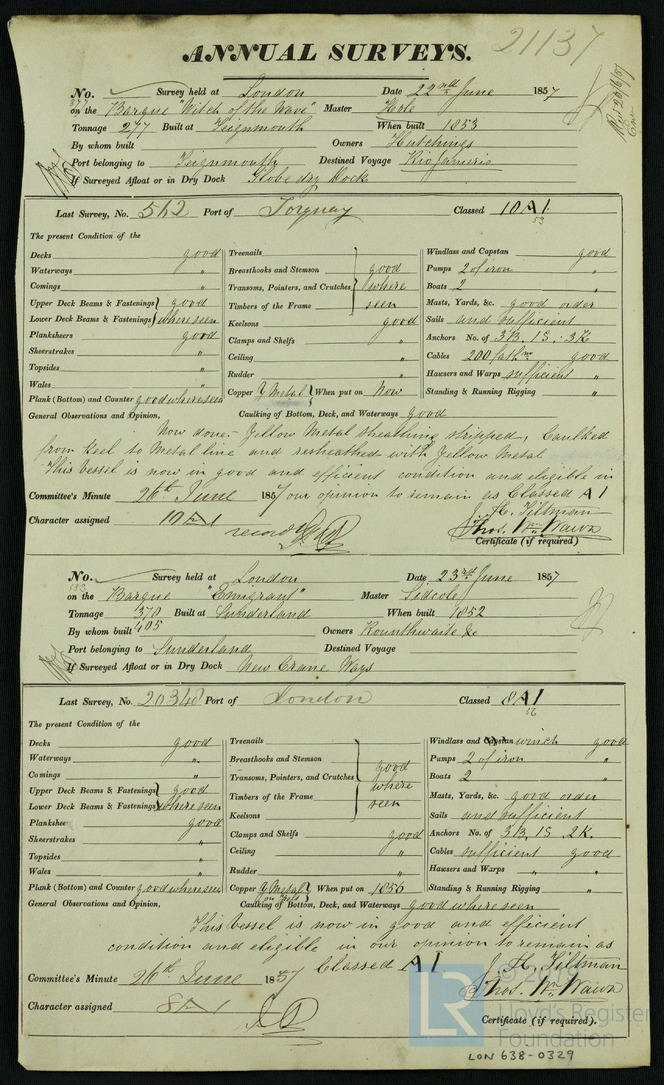 ANNUAL SURVEYS.
21137
No. Survey held at London Date 22nd June 1857
877
on the Barque "Witch of the Wave" Master Hole
Tonnage 277 Built at Teignmouth When built 1853
By whom built Owners Hutchings
Port belonging to Teignmouth Destined Voyage Rio Janeiro
If Surveyed Afloat or in Dry Dock Globe dry Dock
Last Survey, No. 562 Port of Torquay Classed 10 A 1.
53
The present Condition of the
Decks good
Waterways "
Comings "
Upper Deck Beams & Fastenings good
Lower Deck Beams & Fastenings where seen
Planksheers good
Sheerstrakes "
Topsides "
Wales "
Plank (Bottom) and Counter good where seen
Treenails
Breasthooks and Stemson good
Transoms, Pointers, and Crutches where
Timbers of the Frame seen
Keelsons good
Clamps and Shelfs "
Ceiling "
Rudder "
Copper Y Metal When put on Now
Windlass and Capstan good
Pumps 2 of iron "
Boats 2 "
Masts, Yards, &c. good order
Sails and sufficient
Anchors No. of 3 B. 1 S. 3 K
Cables 200 fathms good
Hawsers and Warps sufficient "
Standing & Running Rigging "
General Observations and Opinion, Caulking of Bottom, Deck, and Waterways good
Now done. - Yellow Metal sheathing stripped, Caulked
from Keel to Metal line and resheathed with Yellow Metal
This Vessel is now in good and efficient condition and eligible in
Committee's Minute 26th June 1857 our opinion to remain as Classed A 1
J. H. Tillman
Character assigned 10 A 1
Thos. Wm. Wawn
Certificate (if required)
No. Survey held at London Date 23rd June 1857
on the Barque "Emigrant" Master Lidcole
Tonnage 370 Built at Sunderland When built 1852
405
By whom built Owners Rounthwaite &c
Port belonging to Sunderland Destined Voyage
If Surveyed Afloat or in Dry Dock New Crane Ways
Last Survey, No. 20340 Port of London Classed 8 A 1
56
The present Condition of the
Decks good
Waterways "
Comings "
Upper Deck Beams & Fastenings good
Lower Deck Beams & Fastenings where seen
Planksheer good
Sheerstrakes "
Topsides "
Wales "
Plank (Bottom) and Counter good where seen
Treenails
Breasthooks and Stemson good
Transoms, Pointers, and Crutches where
Timbers of the Frame seen
Keelsons
Clamps and Shelfs good
Ceiling "
Rudder "
Copper Y Metal on Felt When put on 1856
Windlass and Capstan winch good
Pumps 2 of iron "
Boats 2 "
Masts, Yards, &c. good order
Sails and sufficient
Anchors No. of 3 B. 1 S 2 K.
Cables sufficient good
Hawsers and Warps " "
Standing & Running Rigging "
General Observations and Opinion, Caulking of Bottom, Deck, and Waterways good where seen
This Vessel is now in good and efficient
condition and eligible in our opinion to remain as
Classed A 1
Committee's Minute 26th June 1857
J. H. Tillman
Thos. Wm. Wawn
Character assigned 8 A 1
Certificate (if required).
LR
© 2019
Lloyd's Register
Foundation
LON 638-0329